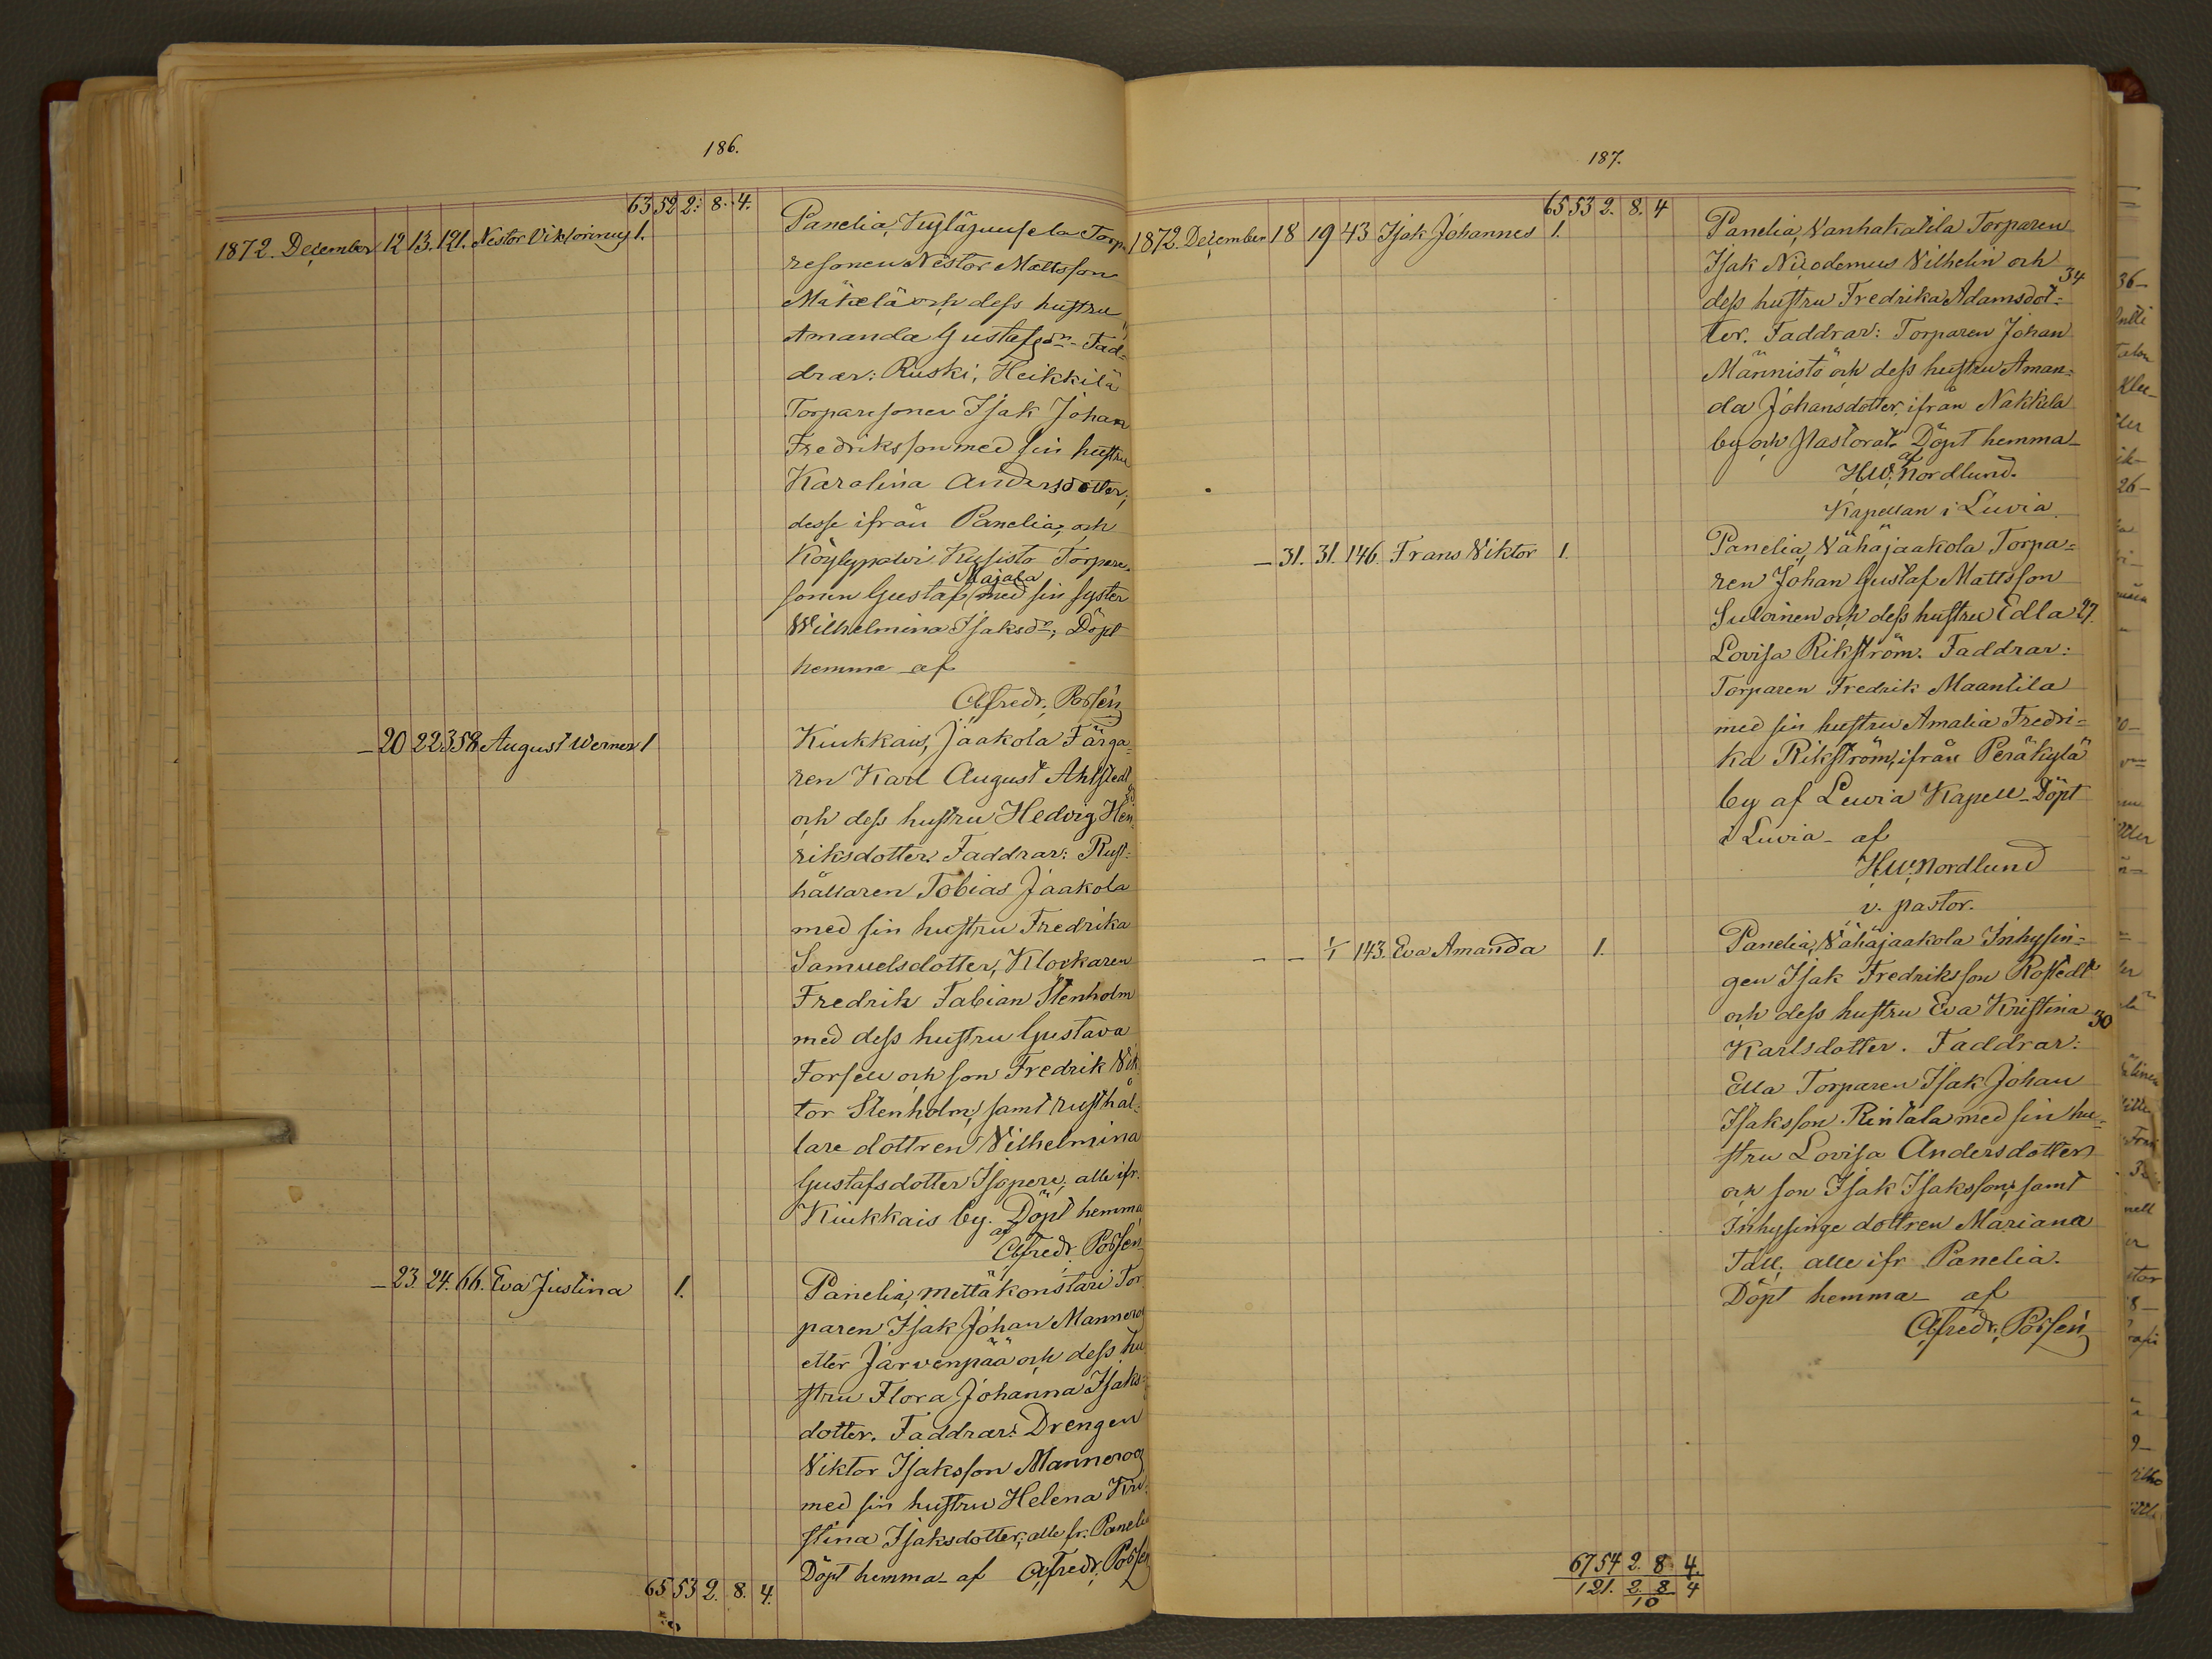 186.
63 52 2. 8. 4.
1872. December 12 13. 121. Nestor Viktorinus 1.
Panelia, Torpa-
resonen Nestor Mattsson
Mäkelä och dess hustru
Amanda Gustafsdr. Fad-
drar: Ruski, Heikkilä
Torparesonen Isak Johan
Fredriksson med sin hustru
Karolina Andersdotter,
desse ifrån Panelia, och
Köylypolvi Torpare-
Majala
sonen Gustaf med sin syster
Wilhelmina Isaksdr; Döpt
hemma af
Alfredr. Possén
– 20 22 358 August Werner 1
Kiukkais, Jaakola Färga-
ren Karl August Ahlstedt
och dess hustru Hedvig Hen-
riksdotter. Faddrar: Rust-
hållaren Tobias Jaakola
med sin hustru Fredrika
Samuelsdotter, Klockaren
Fredrik Fabian Stenholm
med dess hustru Gustava
Forsell och son Fredrik Vik-
tor Stenholm, samt rusthål-
lare dottren Vilhelmina
Gustafsdotter Isopere, alle ifr.
Kiukkais by. Döpt hemma
af
Alfredr. Possén
– 23. 24. 66. Eva Justina 1.
Panelia, Mettäkonstari Tor-
paren Isak Johan Manneroos
eller Järvenpää och dess hu-
stru Flora Johanna Isaks-
dotter. Faddrar: Drengen
Viktor Isaksson Manneroos
med sin hustru Helena Kri-
stina Isaksdotter, alle fr. Panelia
Döpt hemma af Alfredr. Possén
65 53 2. 8. 4.
187.
65 53 2. 8. 4
1872. December 18 19 43 Isak Johannes 1.
Panelia, Vanhakatila Torparen
Isak Nicodemus Vilhelin och
34
dess hustru Fredrika Adamsdot-
ter. Faddrar: Torparen Johan
Männistö och dess hustru Aman-
da Johansdotter, ifrån Nakkila
by och Pastorat. Döpt hemma
af
H.W. Nordlund.
Kapellan i Luvia.
– 31. 31. 146. Frans Viktor 1.
Panelia, Vähäjaakola Torpa-
ren Johan Gustaf Mattsson
Suloinen och dess hustru Edla 27.
Lovisa Rikström. Faddrar:
Torparen Fredrik Maantila
med sin hustru Amalia Fredri-
ka Rikström, ifrån Peräkylä
by af Luvia Kapell. Döpt
i Luvia af
H.W. Nordlund
v. pastor.
– – 1/1 143. Eva Amanda 1.
Panelia, Vähäjaakola Inhysin-
gen Isak Fredriksson Rostedt
och dess hustru Eva Kristina 30
Karlsdotter. Faddrar:
Ella Torparen Isak Johan
Isaksson Rintala med sin hu-
stru Lovisa Andersdotter
och son Isak Isaksson, samt
Inhysinge dottren Mariana
Tall, alle ifr Panelia.
Döpt hemma af
Alfredr. Possén
67 54 2. 8. 4.
121. 2. 8. 4
10